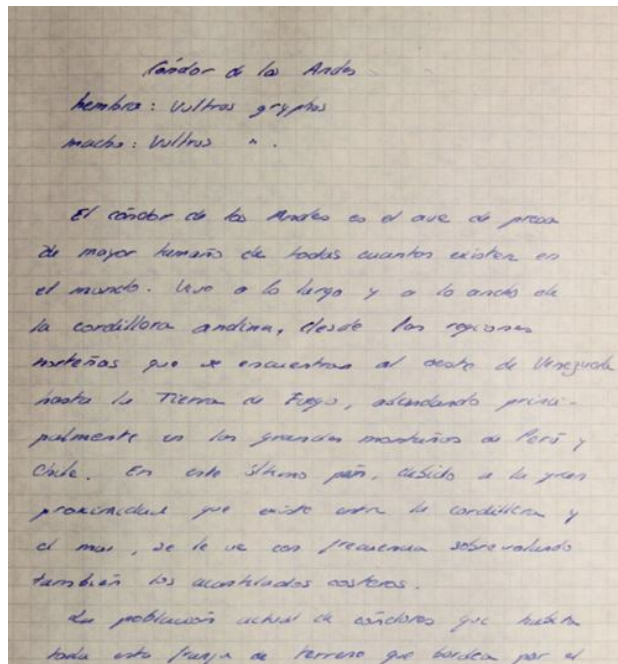 Cóndor de los Andes
hembra: Vultros gryphos
macho: Vultros " .
El cóndor de los Andes es el ave de presa
de mayor tamaño de todas cuantas existen en
el mundo. Vive a lo largo y a lo ancho de
la cordillera andina, desde las regiones
norteñas que se encuentran al oeste de Venezuela
hasta la Tierra de Fuego, abundando princi-
palmente en las grandes montañas de Perú y
Chile. En este último país, debido a la gran
proximidad que existe entre la cordillera y
el mar, se le ve con frecuencia sobrevolando
también los acantilados costeros.
La población actual de cóndores que habita
toda esta franja de terreno que bordea por el